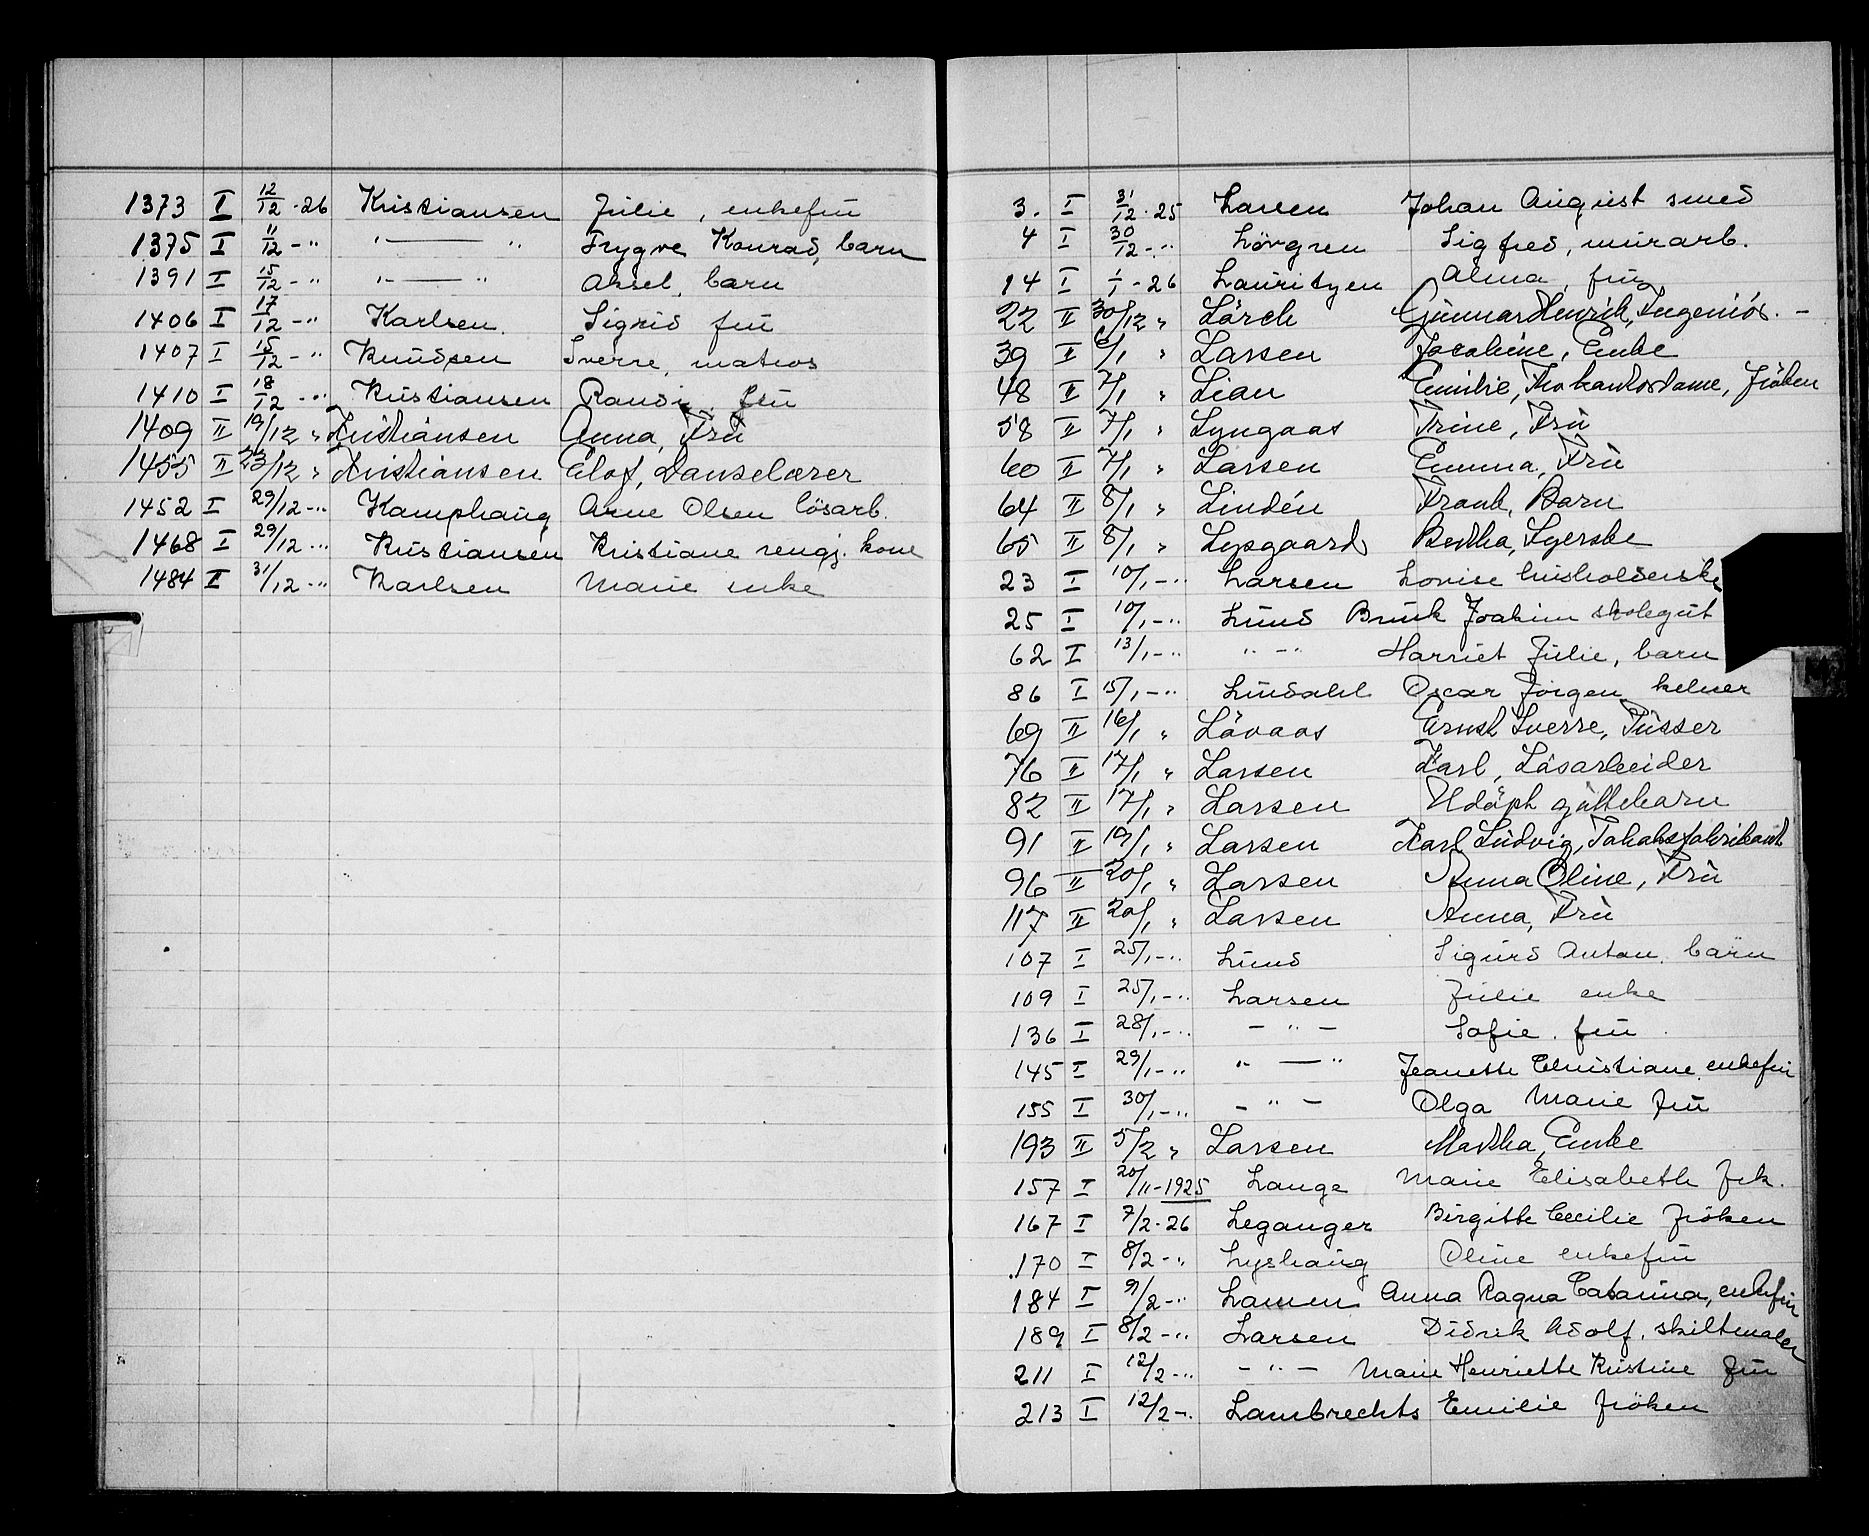 1373 I 12/12-26 Kristiansen Julie, enkefru
1375 I 11/12 - " " — " Trygve Konrad, barn
1391 I 15/12 - " " — " Aksel, barn
1406 I 17/12 - " Karlsen Sigrid fru
1407 I 15/12 - " Knudsen Sverre, matros
1410 I 18/12 - " Kristiansen Randi fru
1409 II 19/12 " Kristiansen Anna, Fru
1455 II 23/12 " Kristiansen Elof, Danselærer
1452 I 29/12 - " Kamphaug Arne Olsen lösarb.
1468 I 29/12 - " Kristiansen Kristiane rengj. kone
1484 I 31/12 - " Karlsen Marie enke
3. I 31/12-25 Larsen Johan August smed
4 I 30/12 - " Lövgren Sigfred, murarb.
14 I 1/1-26 Lauritzen Alma, fru
22 II 30/12 " Lörch Gunnar Henrik, Ingeniör. -
39 II 6/1 " Larsen Jacobine, Enke
48 II 7/1 " Lian Emilie, Frøken
58 II 7/1 " Lyngaas Trine, Fru
60 II 7/1 " Larsen Emma, Fru
64 II 8/1 " Lindén Frank, Barn
65 II 8/1 " Lysgaard Bertha, Syerske
23 I 10/1 - " Larsen Lovise husholderske
25 I 10/1 - " Lund Brink Joakim skolegut
62 I 13/1 - " " - " Harriet Julie, barn
86 I 15/1 - " Lindahl Oscar Jörgen kelner
69 II 16/1 " Lövaas Ernst Sverre, Pusser
76 II 17/1 " Larsen Karl, Lösarbeider
82 II 17/1 " Larsen Udöpt guttebarn
91 II 19/1 " Larsen Karl Ludvig, Tobaksfabrikant
96 II 20/1 " Larsen Anna Oline, Fru
117 II 20/1 " Larsen Anna, Fru
107 I 25/1 - " Lund Sigurd Anton, barn
109 I 25/1 - " Larsen Julie enke
136 I 28/1 - " - " - Sofie, fru
145 I 29/1 - " " — " Jeanette Christiane, enkefru
155 I 30/1 - " - " - Olga Marie fru
193 II 5/2 " Larsen Martha, Enke
157 I 20/11-1925 Lange Marie Elisabeth frk.
167 I 7/2-26 Leganger Birgitte Cecilie fröken
170 I 8/2 - " Lyshaug Oline enkefru
184 I 9/2 - " Larsen Anna Ragna Catarina, enkefru
189 I 8/2 - " Larsen Didrik Adolf, skiltmaler
211 I 12/2 - " - " - Marie Henriette Kristine fru
213 I 12/2 - " Lambrechts Emilie fröken